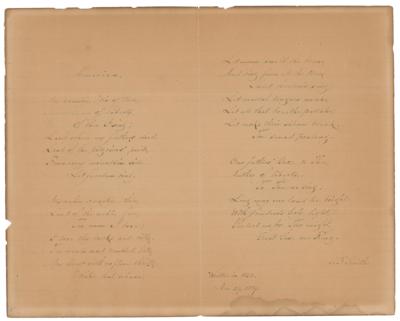 America.
My country, 'tis of thee,
Sweet land of liberty,
Of thee I sing;
Land where my fathers died,
Land of the pilgrims' pride,
From every mountain side
Let freedom ring.
My native country, thee,
Land of the noble, free,
Thy name I love;
I love thy rocks and rills,
Thy woods and templed hills,
My heart with rapture thrills
Like that above.
Let music swell the breeze,
And ring from all the trees
Sweet freedom's song;
Let mortal tongues awake,
Let all that breathe partake,
Let rocks their silence break,
The sound prolong.
Our fathers' God, to Thee,
Author of liberty,
To Thee we sing;
Long may our land be bright
With freedom's holy light;
Protect us by Thy might,
Great God, our King.
Smith
Written in 1832.